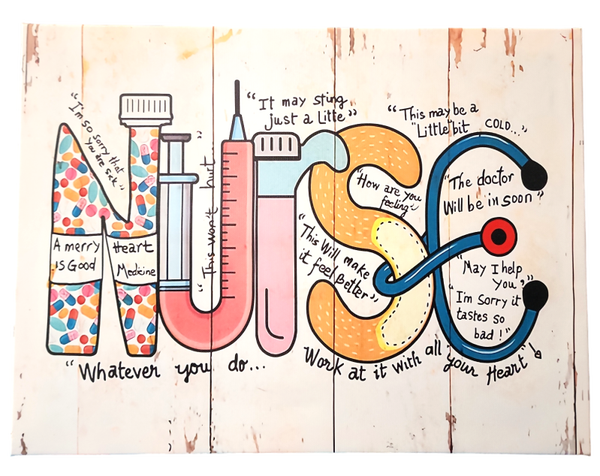 NURSE
"I'm so sorry that
you are sick"
A merry
is Good
Heart
Medcine
"This won't hurt"
"It may sting
just a Litte"
"This may be a
"Little bit COLD..."
"How are you
feeling"
"The doctor
Will be in soon"
"This Will make
it feel Better"
"May I help
you"
"I'm Sorry it
tastes so
bad!"
"Whatever you do...
Work at it with all your Heart"!